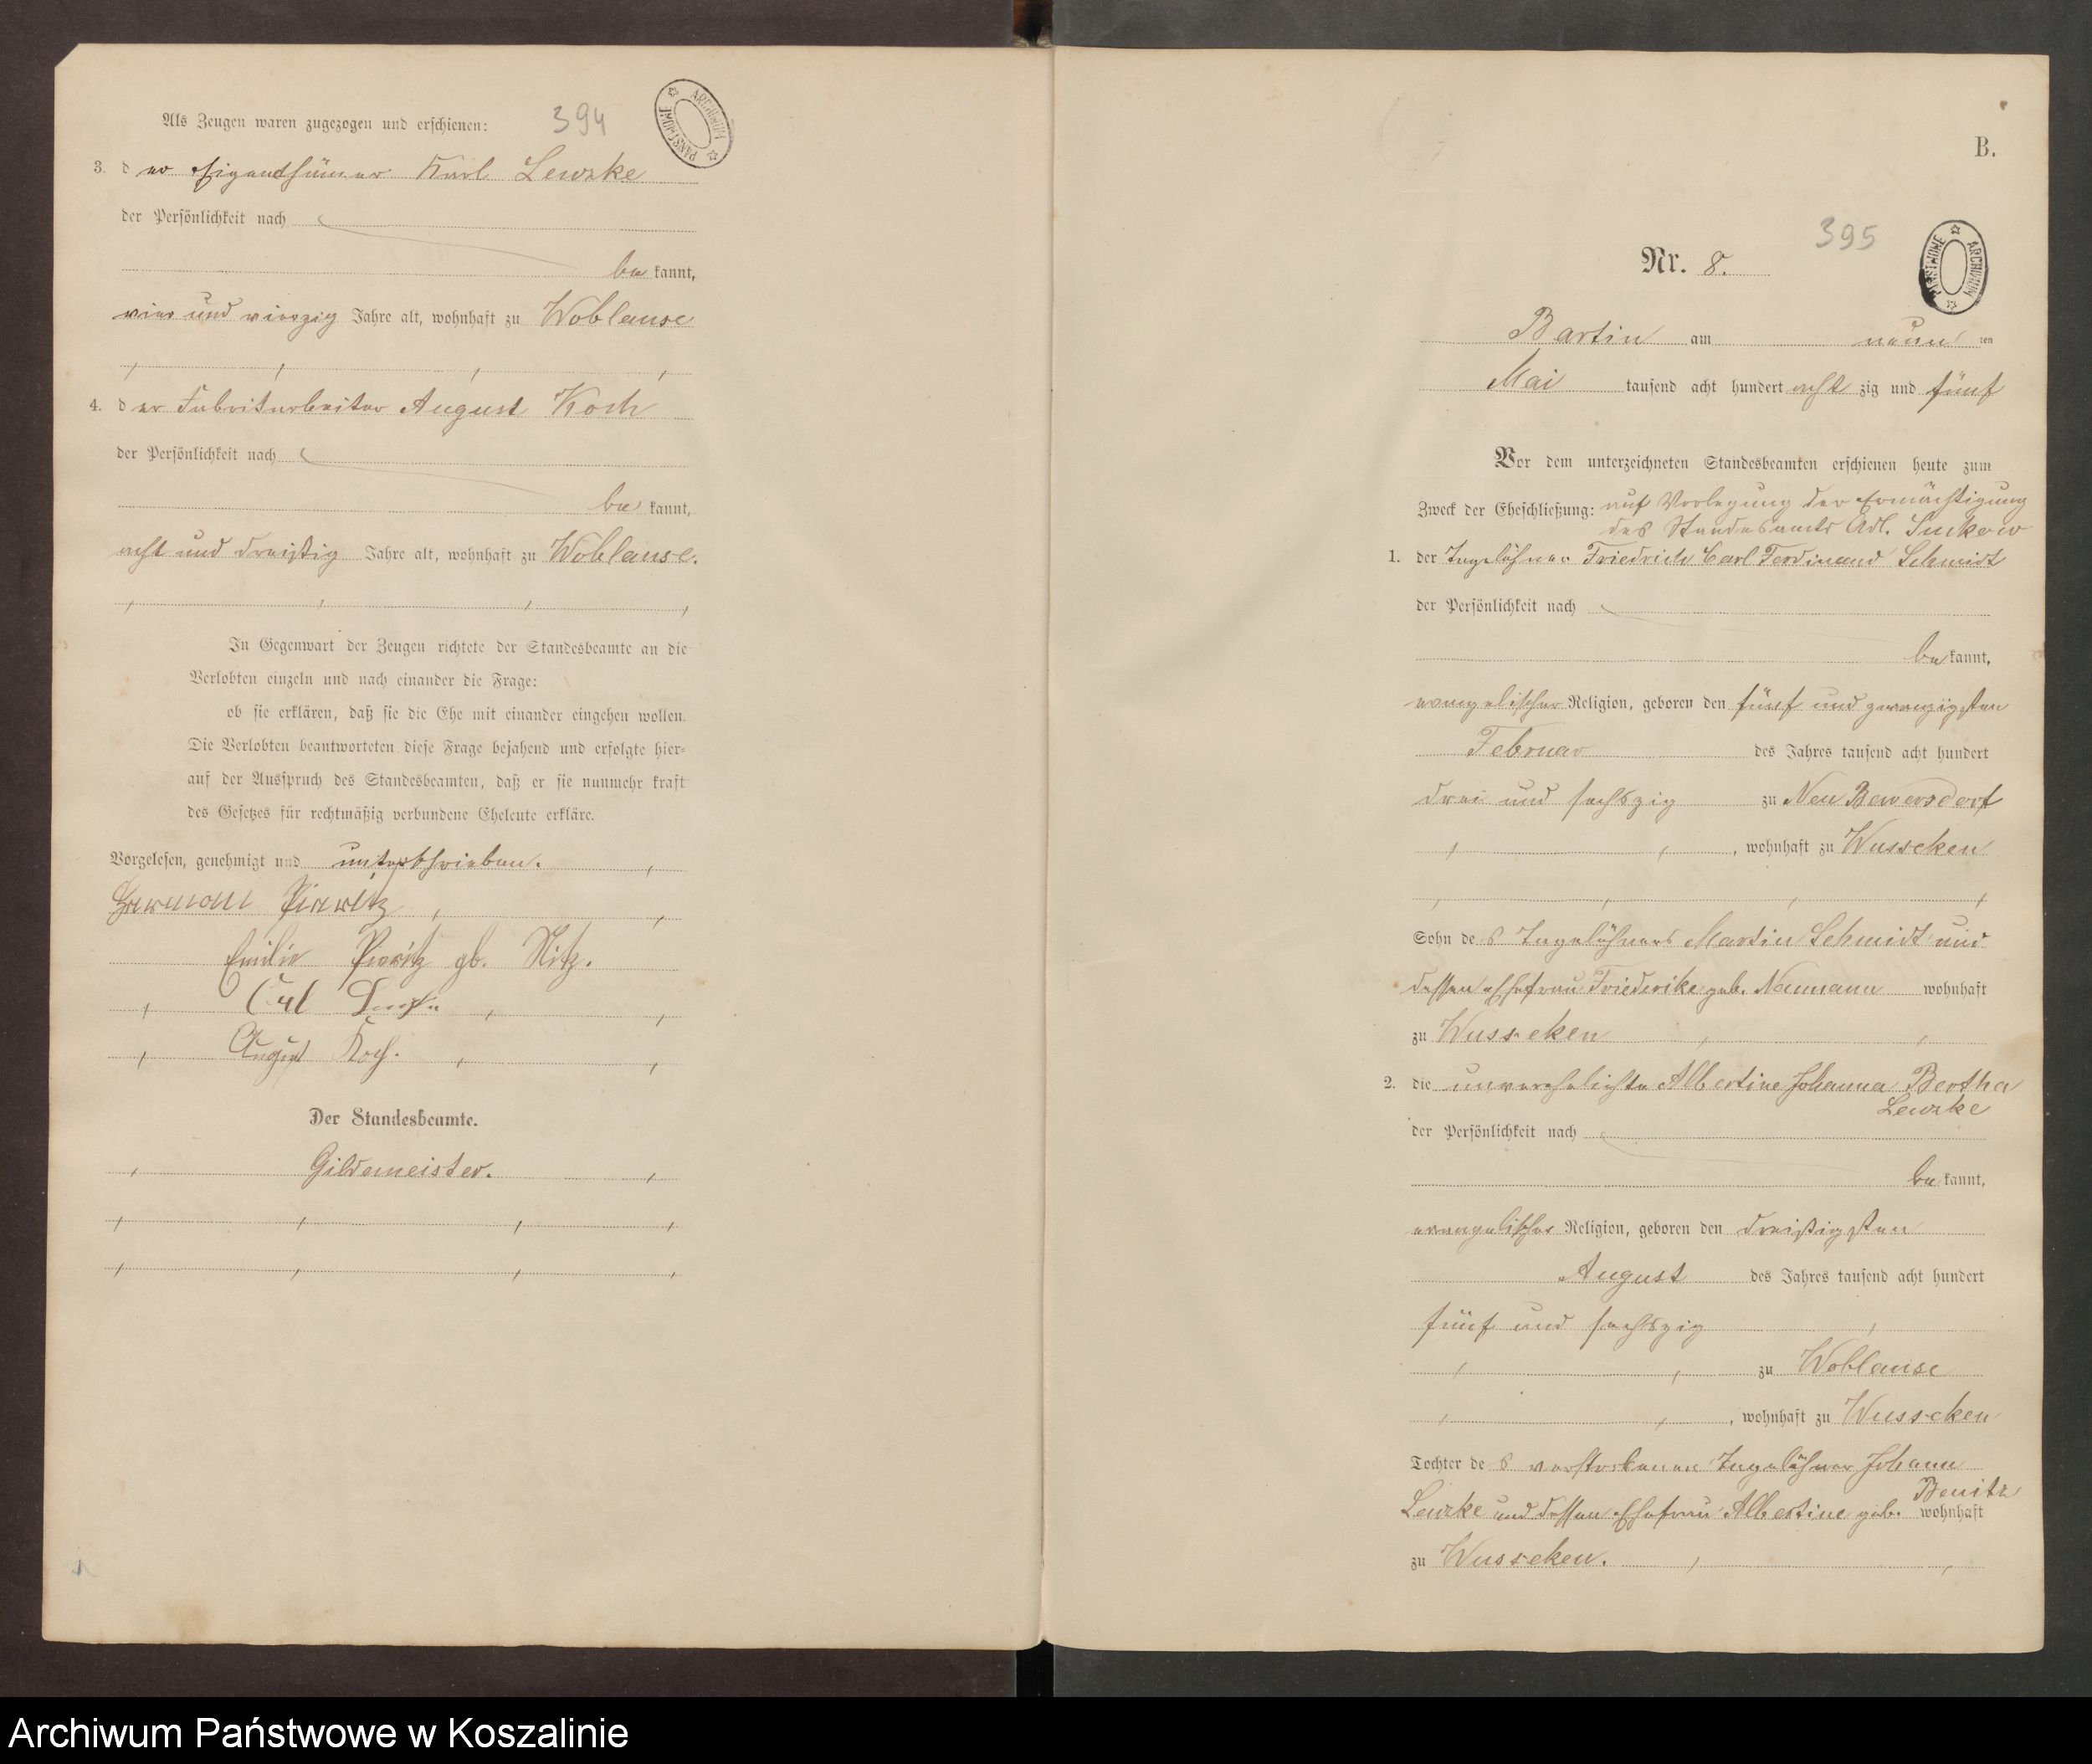 394
ARCHIWUM PAŃSTWOWE
Als Zeugen waren zugezogen und erschienen:
3. der Eigenthümer Karl Lewzke
der Persönlichkeit nach
be kannt,
vier und vierzig Jahre alt, wohnhaft zu Woblanse
4. der Fabrikarbeiter August Koch
der Persönlichkeit nach
be kannt,
acht und dreißig Jahre alt, wohnhaft zu Woblanse.
In Gegenwart der Zeugen richtete der Standesbeamte an die
Verlobten einzeln und nach einander die Frage:
ob sie erklären, daß sie die Ehe mit einander eingehen wollen.
Die Verlobten beantworteten diese Frage bejahend und erfolgte hier-
auf der Ausspruch des Standesbeamten, daß er sie nunmehr kraft
des Gesetzes für rechtmäßig verbundene Eheleute erkläre.
Vorgelesen, genehmigt und unterschrieben.
Hermann
Emilie gb. Nitz.
Carl
August Koch.
Der Standesbeamte.
Gildemeister.
B.
395
ARCHIWUM PAŃSTWOWE
Nr. 8.
Bartin am neun ten
Mai tausend acht hundert acht zig und fünf
Vor dem unterzeichneten Standesbeamten erschienen heute zum
Zweck der Eheschließung: auf Vorlegung der Ermächtigung
des Standesamts Adl. Suckow
1. der Tagelöhner Friedrich Carl Ferdinand Schmidt
der Persönlichkeit nach
be kannt,
evangelischer Religion, geboren den fünf und zwanzigsten
Februar des Jahres tausend acht hundert
drei und sechszig zu Neu Bewersdorf
, wohnhaft zu Wusseken
Sohn des Tagelöhners Martin Schmidt und
dessen Ehefrau Friederike geb. Naumann wohnhaft
zu Wusseken
2. die unverehelichte Albertine Johanna Bertha
Lewzke
der Persönlichkeit nach
be kannt,
evangelischer Religion, geboren den dreißigsten
August des Jahres tausend acht hundert
fünf und sechszig
zu Woblanse
, wohnhaft zu Wusseken
Tochter des verstorbenen Tagelöhner Johann
Benitz
Lewzke und dessen Ehefrau Albertine geb. wohnhaft
zu Wusseken.
Archiwum Państwowe w Koszalinie